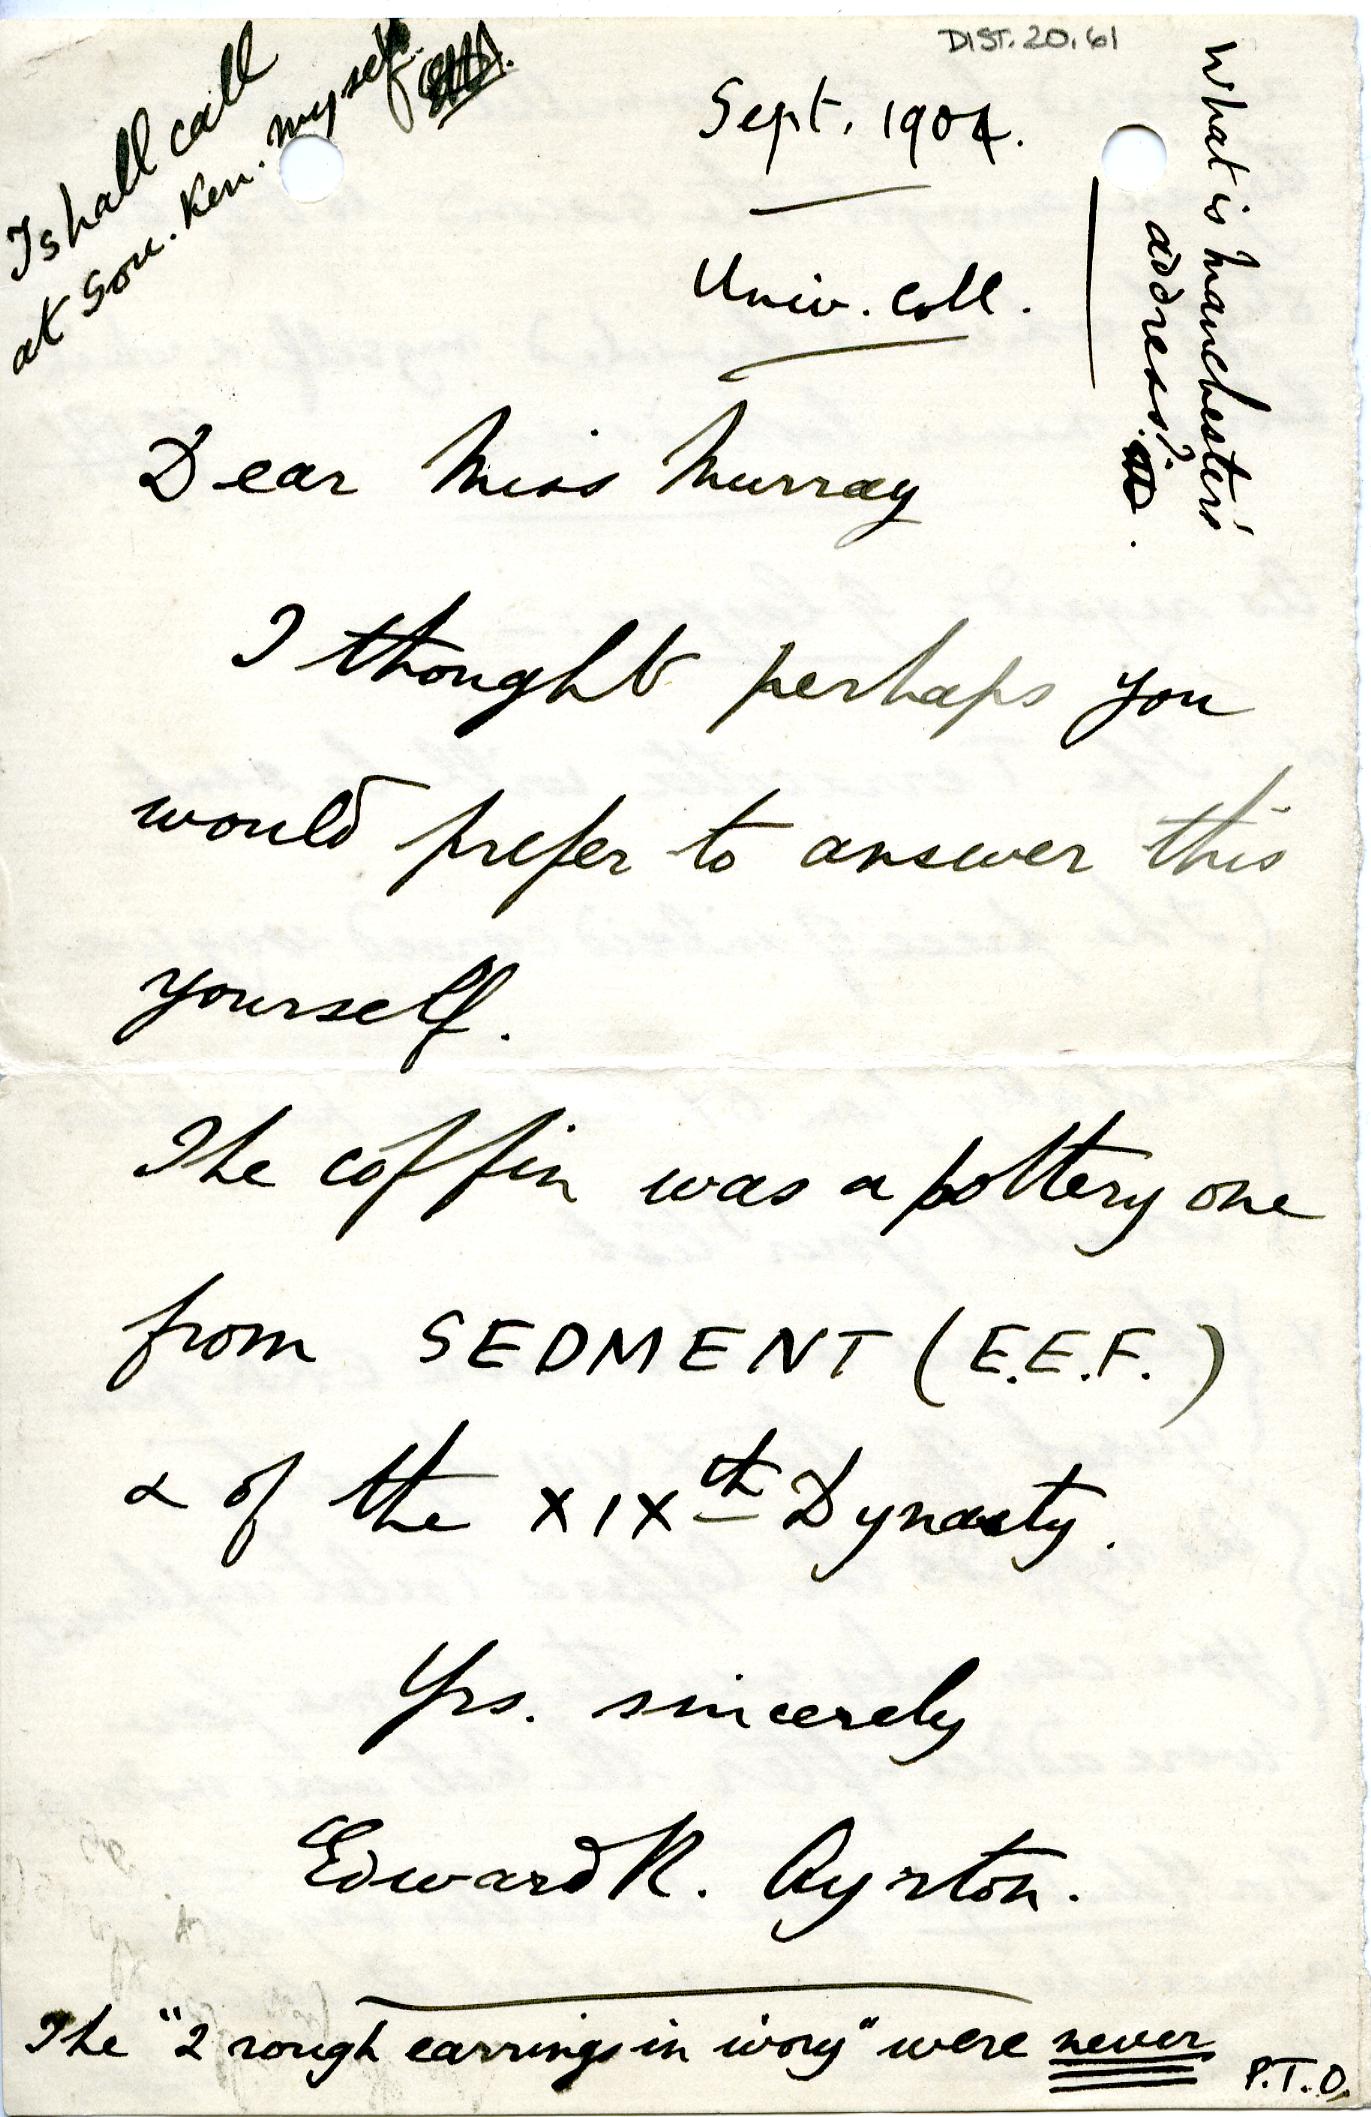 DIST. 20.61
I shall call
at Sou. Ken. myself.
What is Manchester's
address?
Sept. 1904.
Univ. Coll.
Dear Miss Murray
I thought perhaps you
would prefer to answer this
yourself.
The coffin was a pottery one
from SEDMENT (E.E.F.)
& of the XIXth Dynasty.
Yrs. sincerely
Edward R. Ayrton.
The "2 rough earrings in ivory" were never
P.T.O.